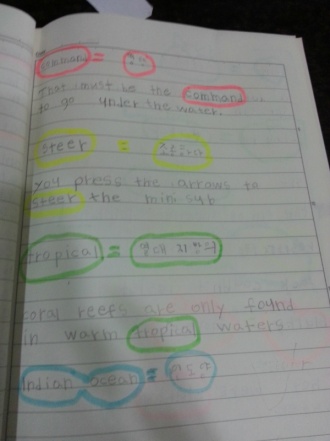 command = 
That must be the command
to go under the water.
steer = 조종하다
you press the arrows to
steer the mini sub
tropical = 열대 지방의
coral reefs are only found
in warm tropical waters
Indian ocean = 인도양